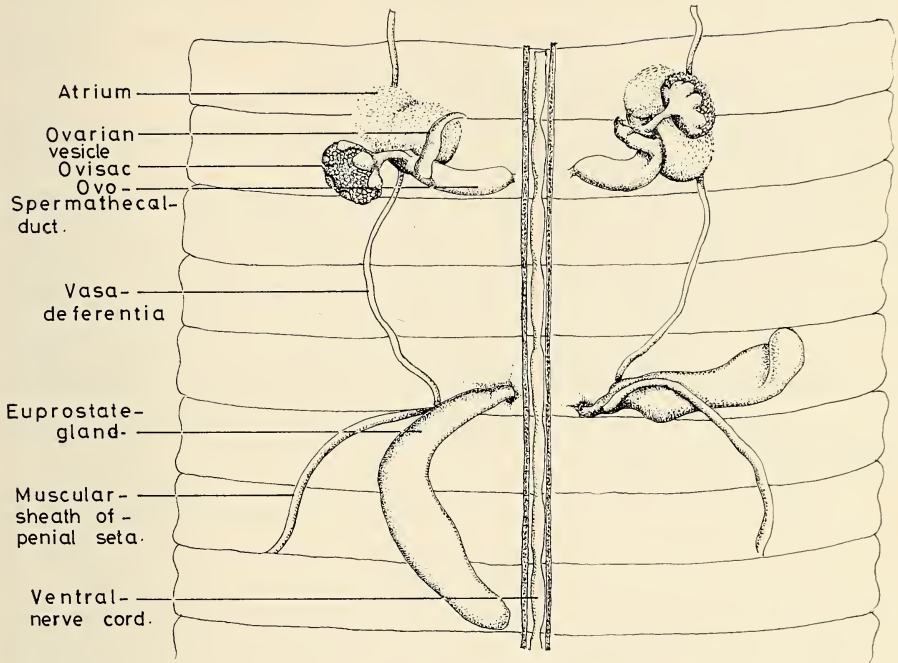 Atrium
Ovarian
vesicle
Ovisac
Ovo-
Spermathecal-
duct.
Vasa-
deferentia
Euprostate-
gland-
Muscular-
sheath of-
penial seta.
Ventral-
nerve cord.